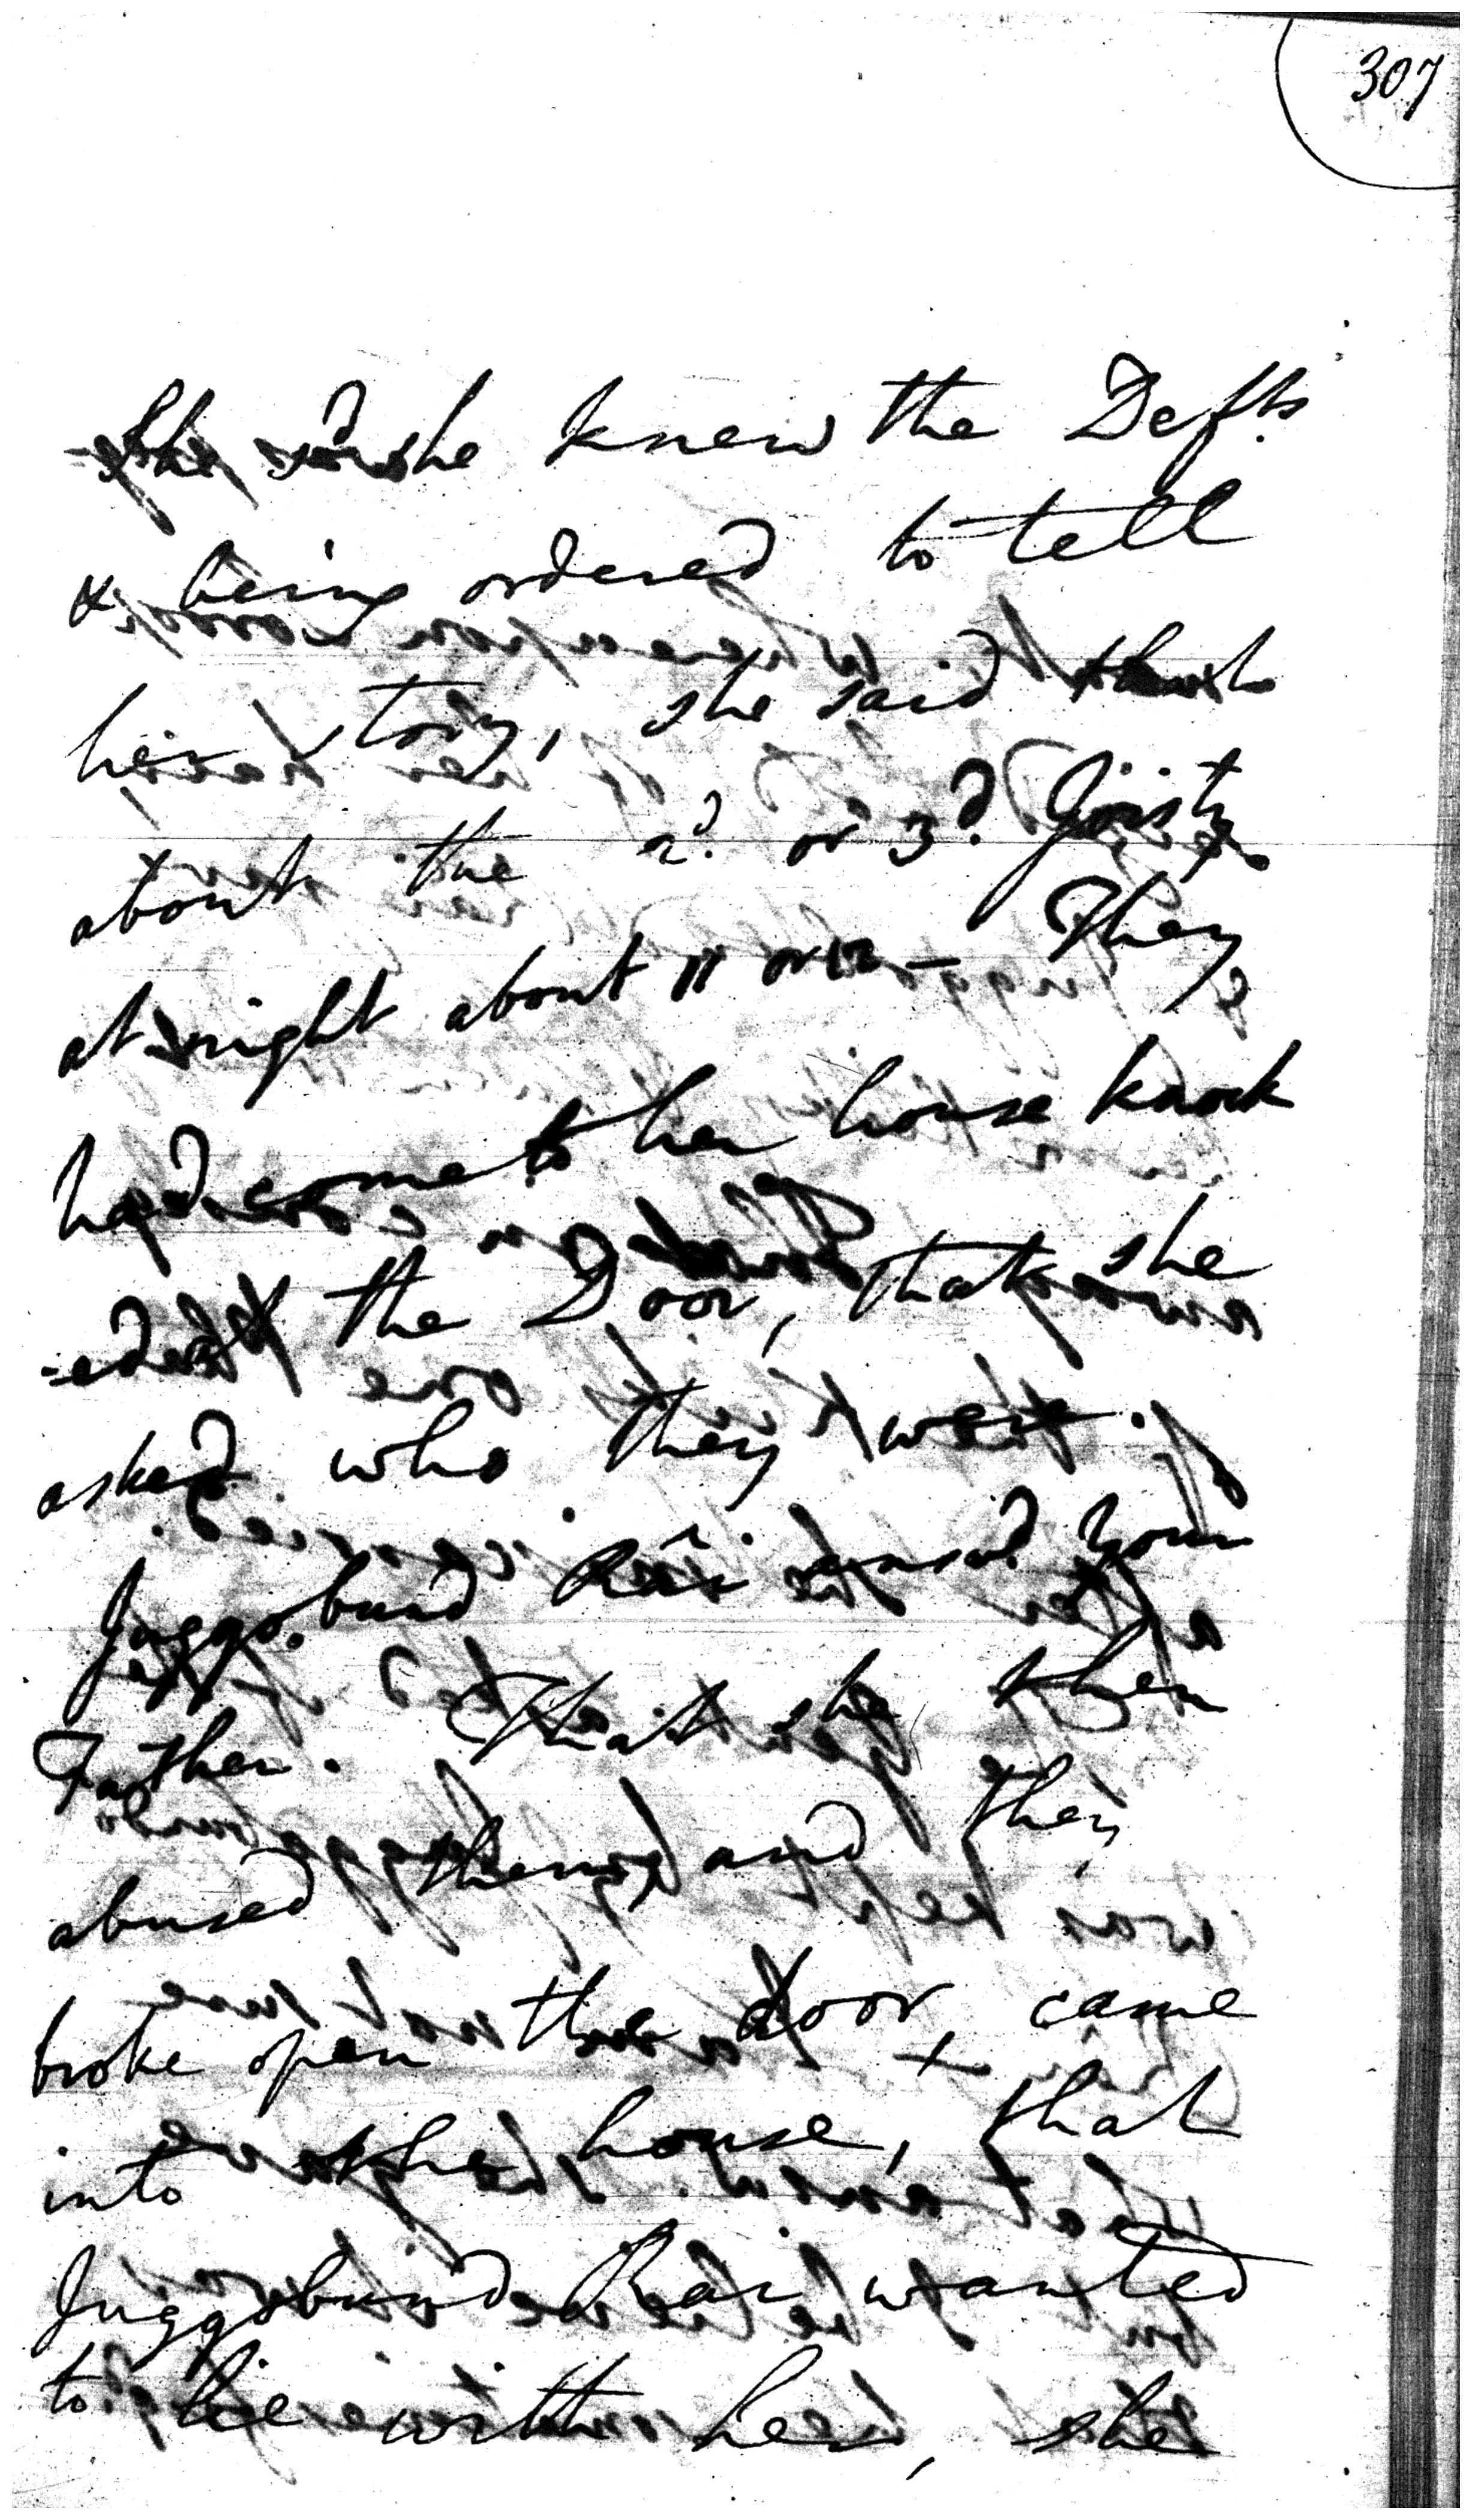 307
She sd. she knew the Defts
& being ordered to tell
her story, she said that
about the 2d. or 3d. Joist
at night about 11 or 12 — They
had come to her house knock
=ed at the Door, that she
asked who they were.
Juggobund Rai answd. your
Father. That she then
abused them, and they
broke open the door, & came
into the house, that
Juggobund Rai wanted
to lie with her, she